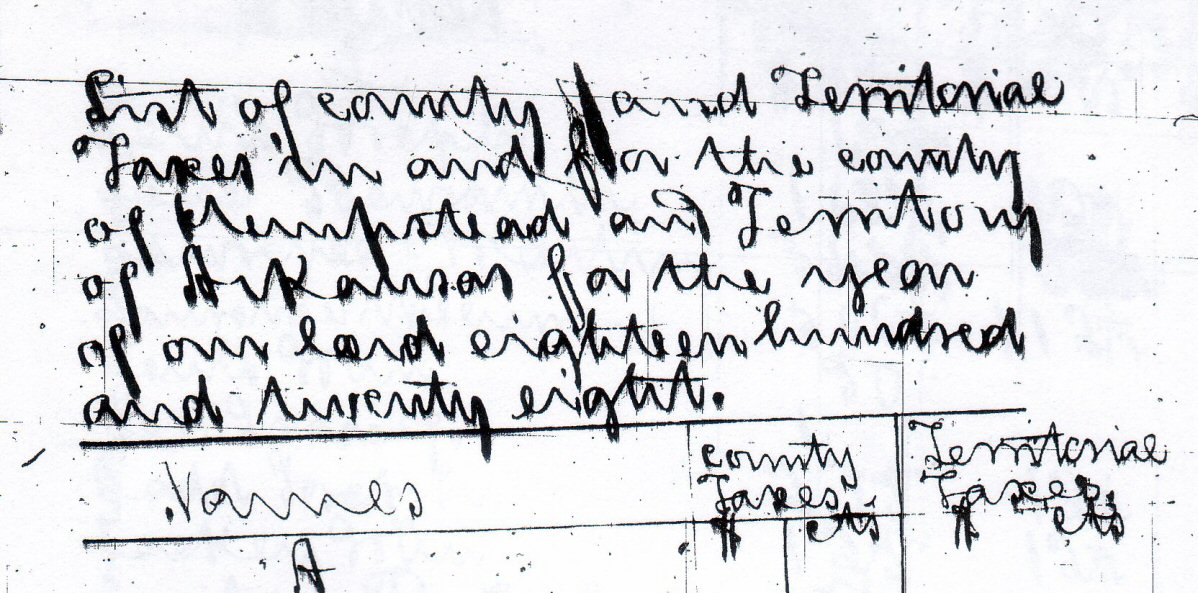 List of county and Territorial
Taxes in and for the county
of Hempstead and Territory
of Arkansas for the year
of our lord eighteen hundred
and twenty eight.
Names
county
Taxes
$ cts
Territorial
Taxes.
$ cts
A